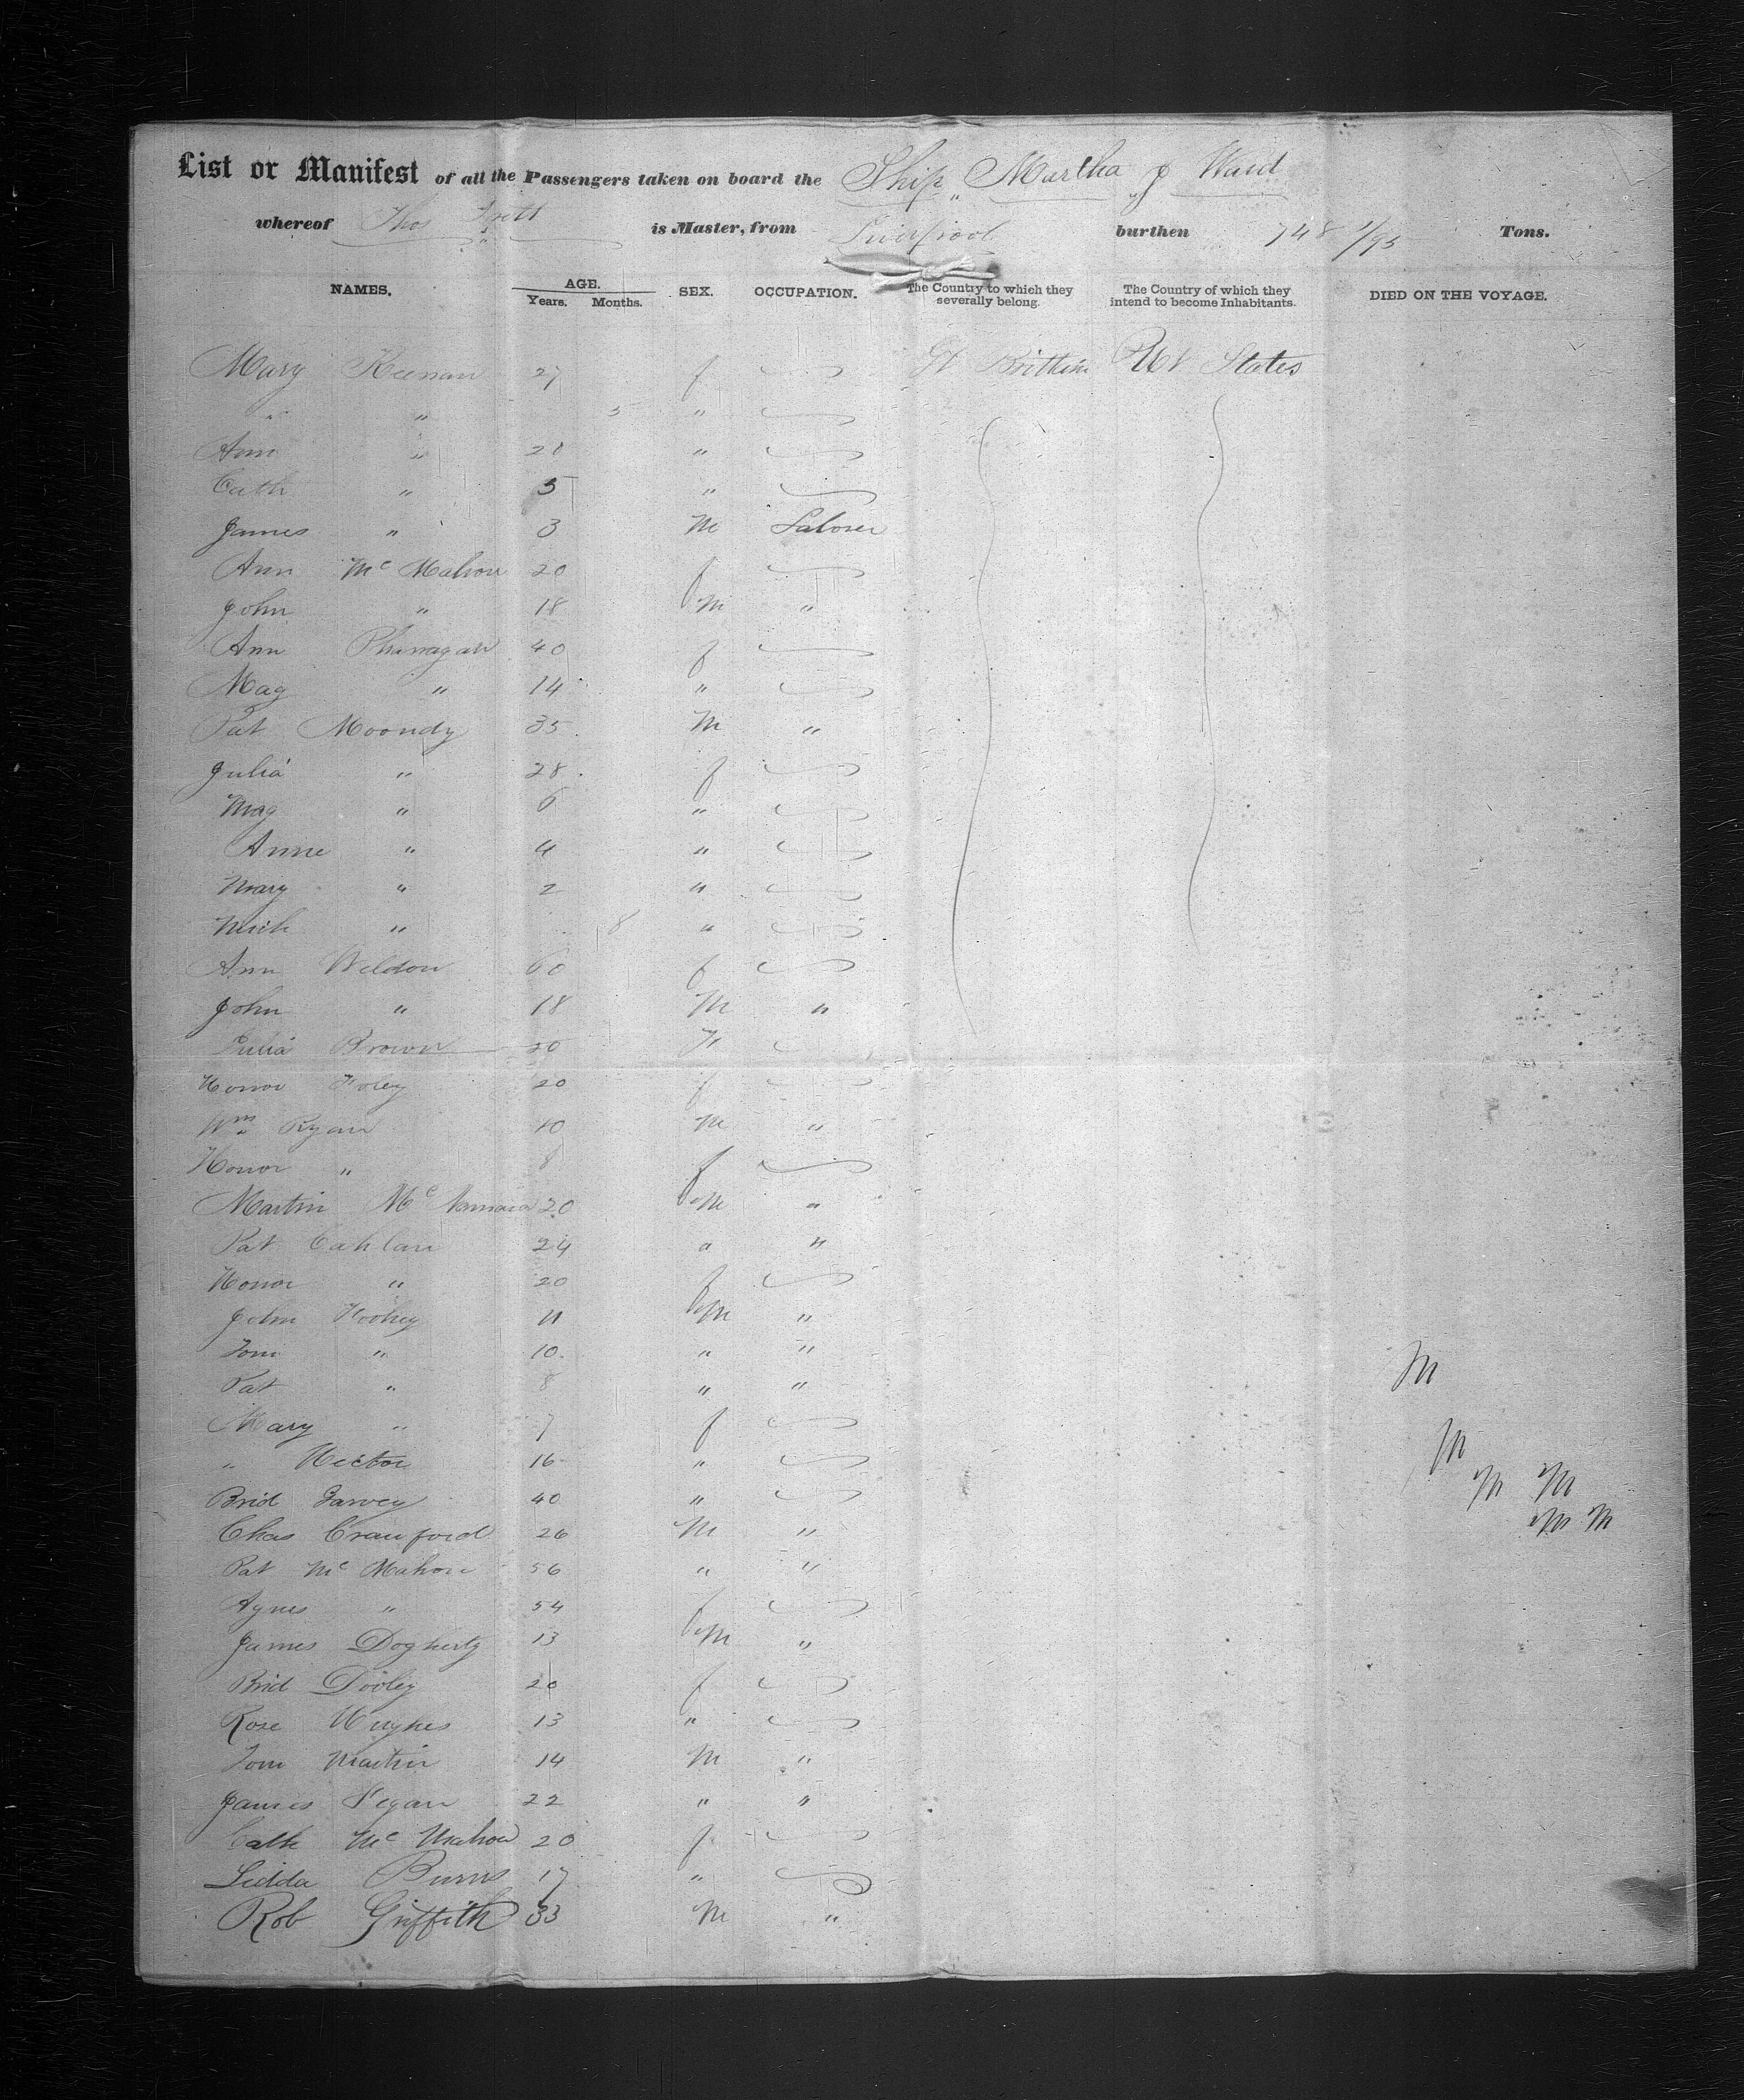 List or Manifest of all the Passengers taken on board the Ship Martha J Ward
whereof Thos is Master, from Liverpool burthen 748 1/95 Tons.
NAMES. AGE. Years. Months. SEX. OCCUPATION. The Country to which they severally belong. The Country of which they intend to become Inhabitants. DIED ON THE VOYAGE.
Mary Keenan 27 f Gt Brittin Ut States
" " 5 "
Ann " 28 "
Cath " 5 "
James " 3 M Laborer
Ann Mc Mahon 20 f
John " 18 M "
Ann 40 f
Mag " 14 "
Pat Moondy 35 M "
Julia " 28 f
Mag " 6 "
Anne " 4 "
Mary " 2 "
Mich " 8 "
Ann Weldon 60 f
John " 18 M "
Julia Brown 20 F
Honor Foley 20 f
Wm Ryan 40 M "
Honor " 8 f
Martin Mc Namara 20 M "
Pat Cahlan 24 " "
Honor " 20 f
John 11 M "
Tom " 10 " "
Pat " 8 " "
Mary " 7 f
" Hector 16 "
Brid Garvey 40 "
Chas Crawford 26 M "
Pat Mc Mahon 56 " "
Agnes " 54 f
James Dogherty 13 M "
Brid Dooley 20 f
Rose Hughes 13 "
Tom Martin 14 M "
James 22 " "
Cath Mc Mahon 20 f
Lidda Burns 17 "
Rob Griffith 33 M "